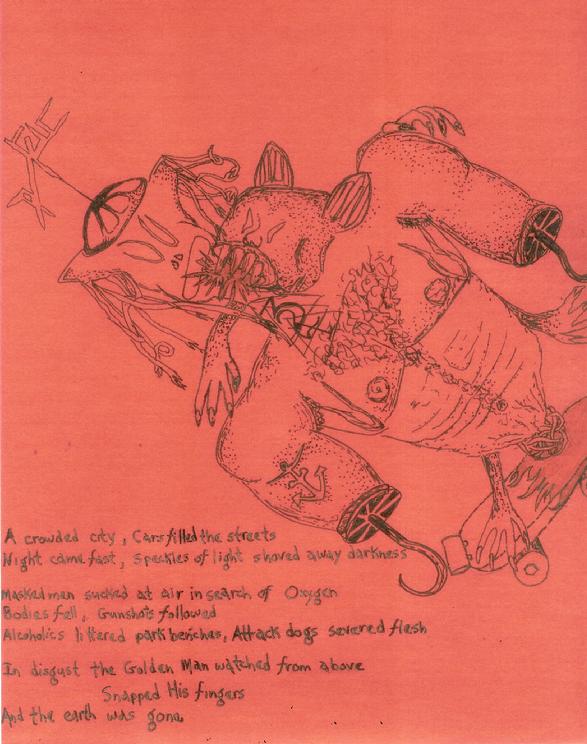 A crowded city, Cars filled the streets
Night came fast, Speckles of light shoved away darkness
Masked men sucked at air in search of Oxygen
Bodies fell, Gunshots followed
Alcoholics littered park benches, Attack dogs severed flesh
In disgust the Golden Man watched from above
Snapped His fingers
And the earth was gone